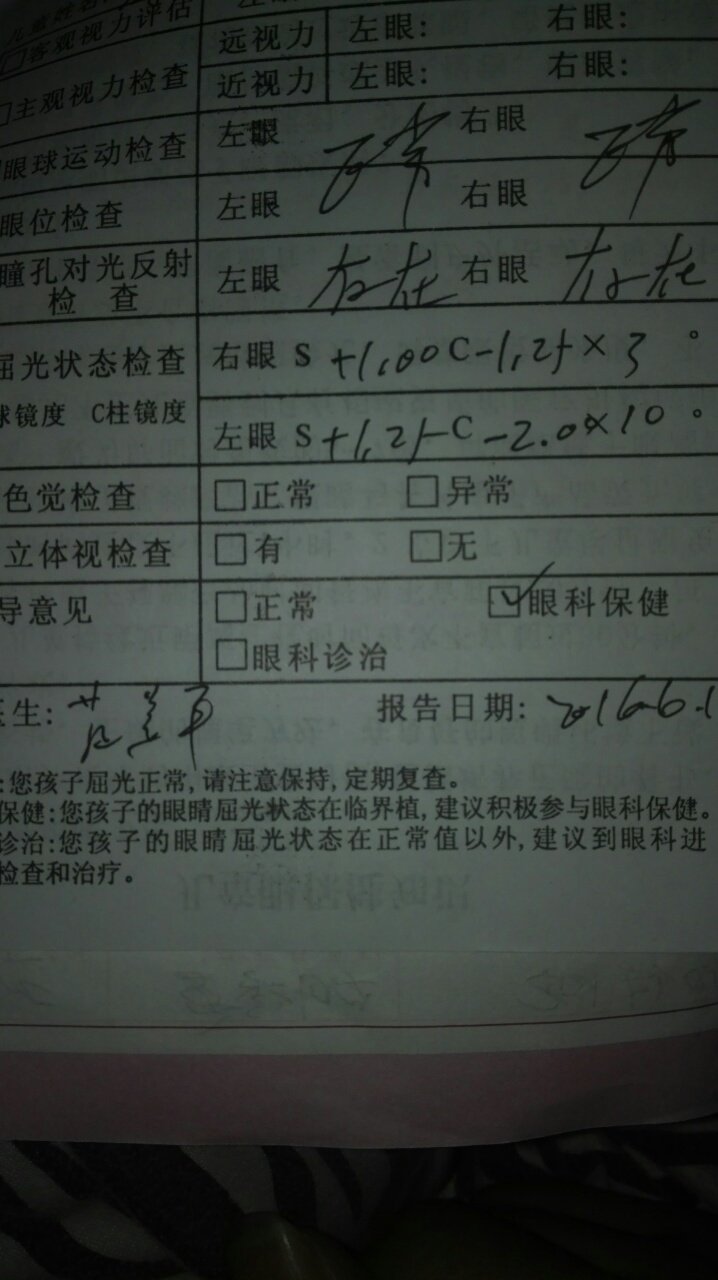 儿童姓名
□客观视力评估 左眼: 右眼:
□主观视力检查 远视力 左眼: 右眼:
近视力 左眼: 右眼:
眼球运动检查 左眼 正常 右眼 正常
眼位检查 左眼 右眼
瞳孔对光反射检查 左眼 存在 右眼 存在
屈光状态检查 右眼 S +1.00 C -1.25 × 3 °
球镜度 C柱镜度 左眼 S +1.25 C -2.0 × 10 °
色觉检查 □正常 □异常
立体视检查 □有 □无
导意见 □正常 ☑眼科保健
□眼科诊治
医生: 报告日期: 2016.6.1
:您孩子屈光正常,请注意保持,定期复查。
保健:您孩子的眼睛屈光状态在临界植,建议积极参与眼科保健。
诊治:您孩子的眼睛屈光状态在正常值以外,建议到眼科进
检查和治疗。